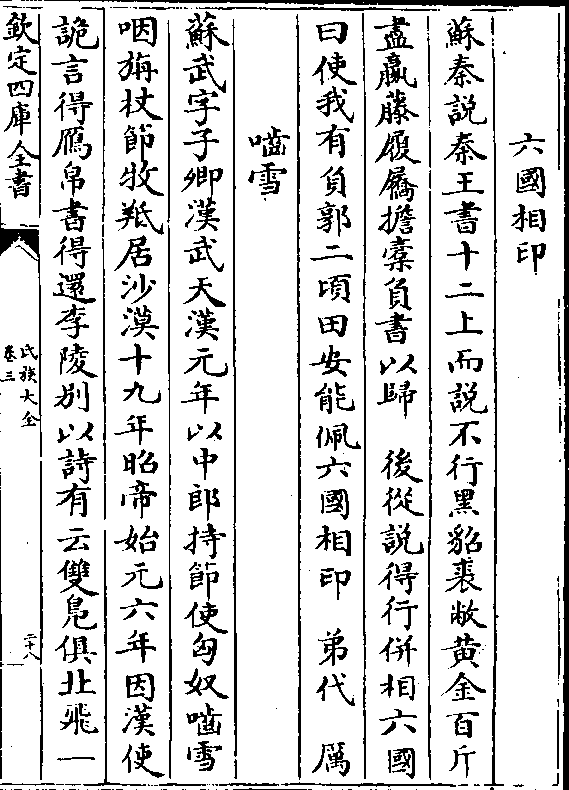 六國相印
蘇秦説秦王書十二上而説不行黑貂裘敝黄金百斤
盡羸縢履屩擔橐負書以歸　後從説得行併相六國
曰使我有負郭二頃田安能佩六國相印　弟代　厲
嚙雪
蘇武字子卿漢武天漢元年以中郎持節使匈奴嚙雪
咽旃杖節牧羝居沙漠十九年昭帝始元六年因漢使
詭言得鴈帛書得還李陵别以詩有云雙鳬俱北飛一
欽定四庫全書
氏族大全
卷三
二十八